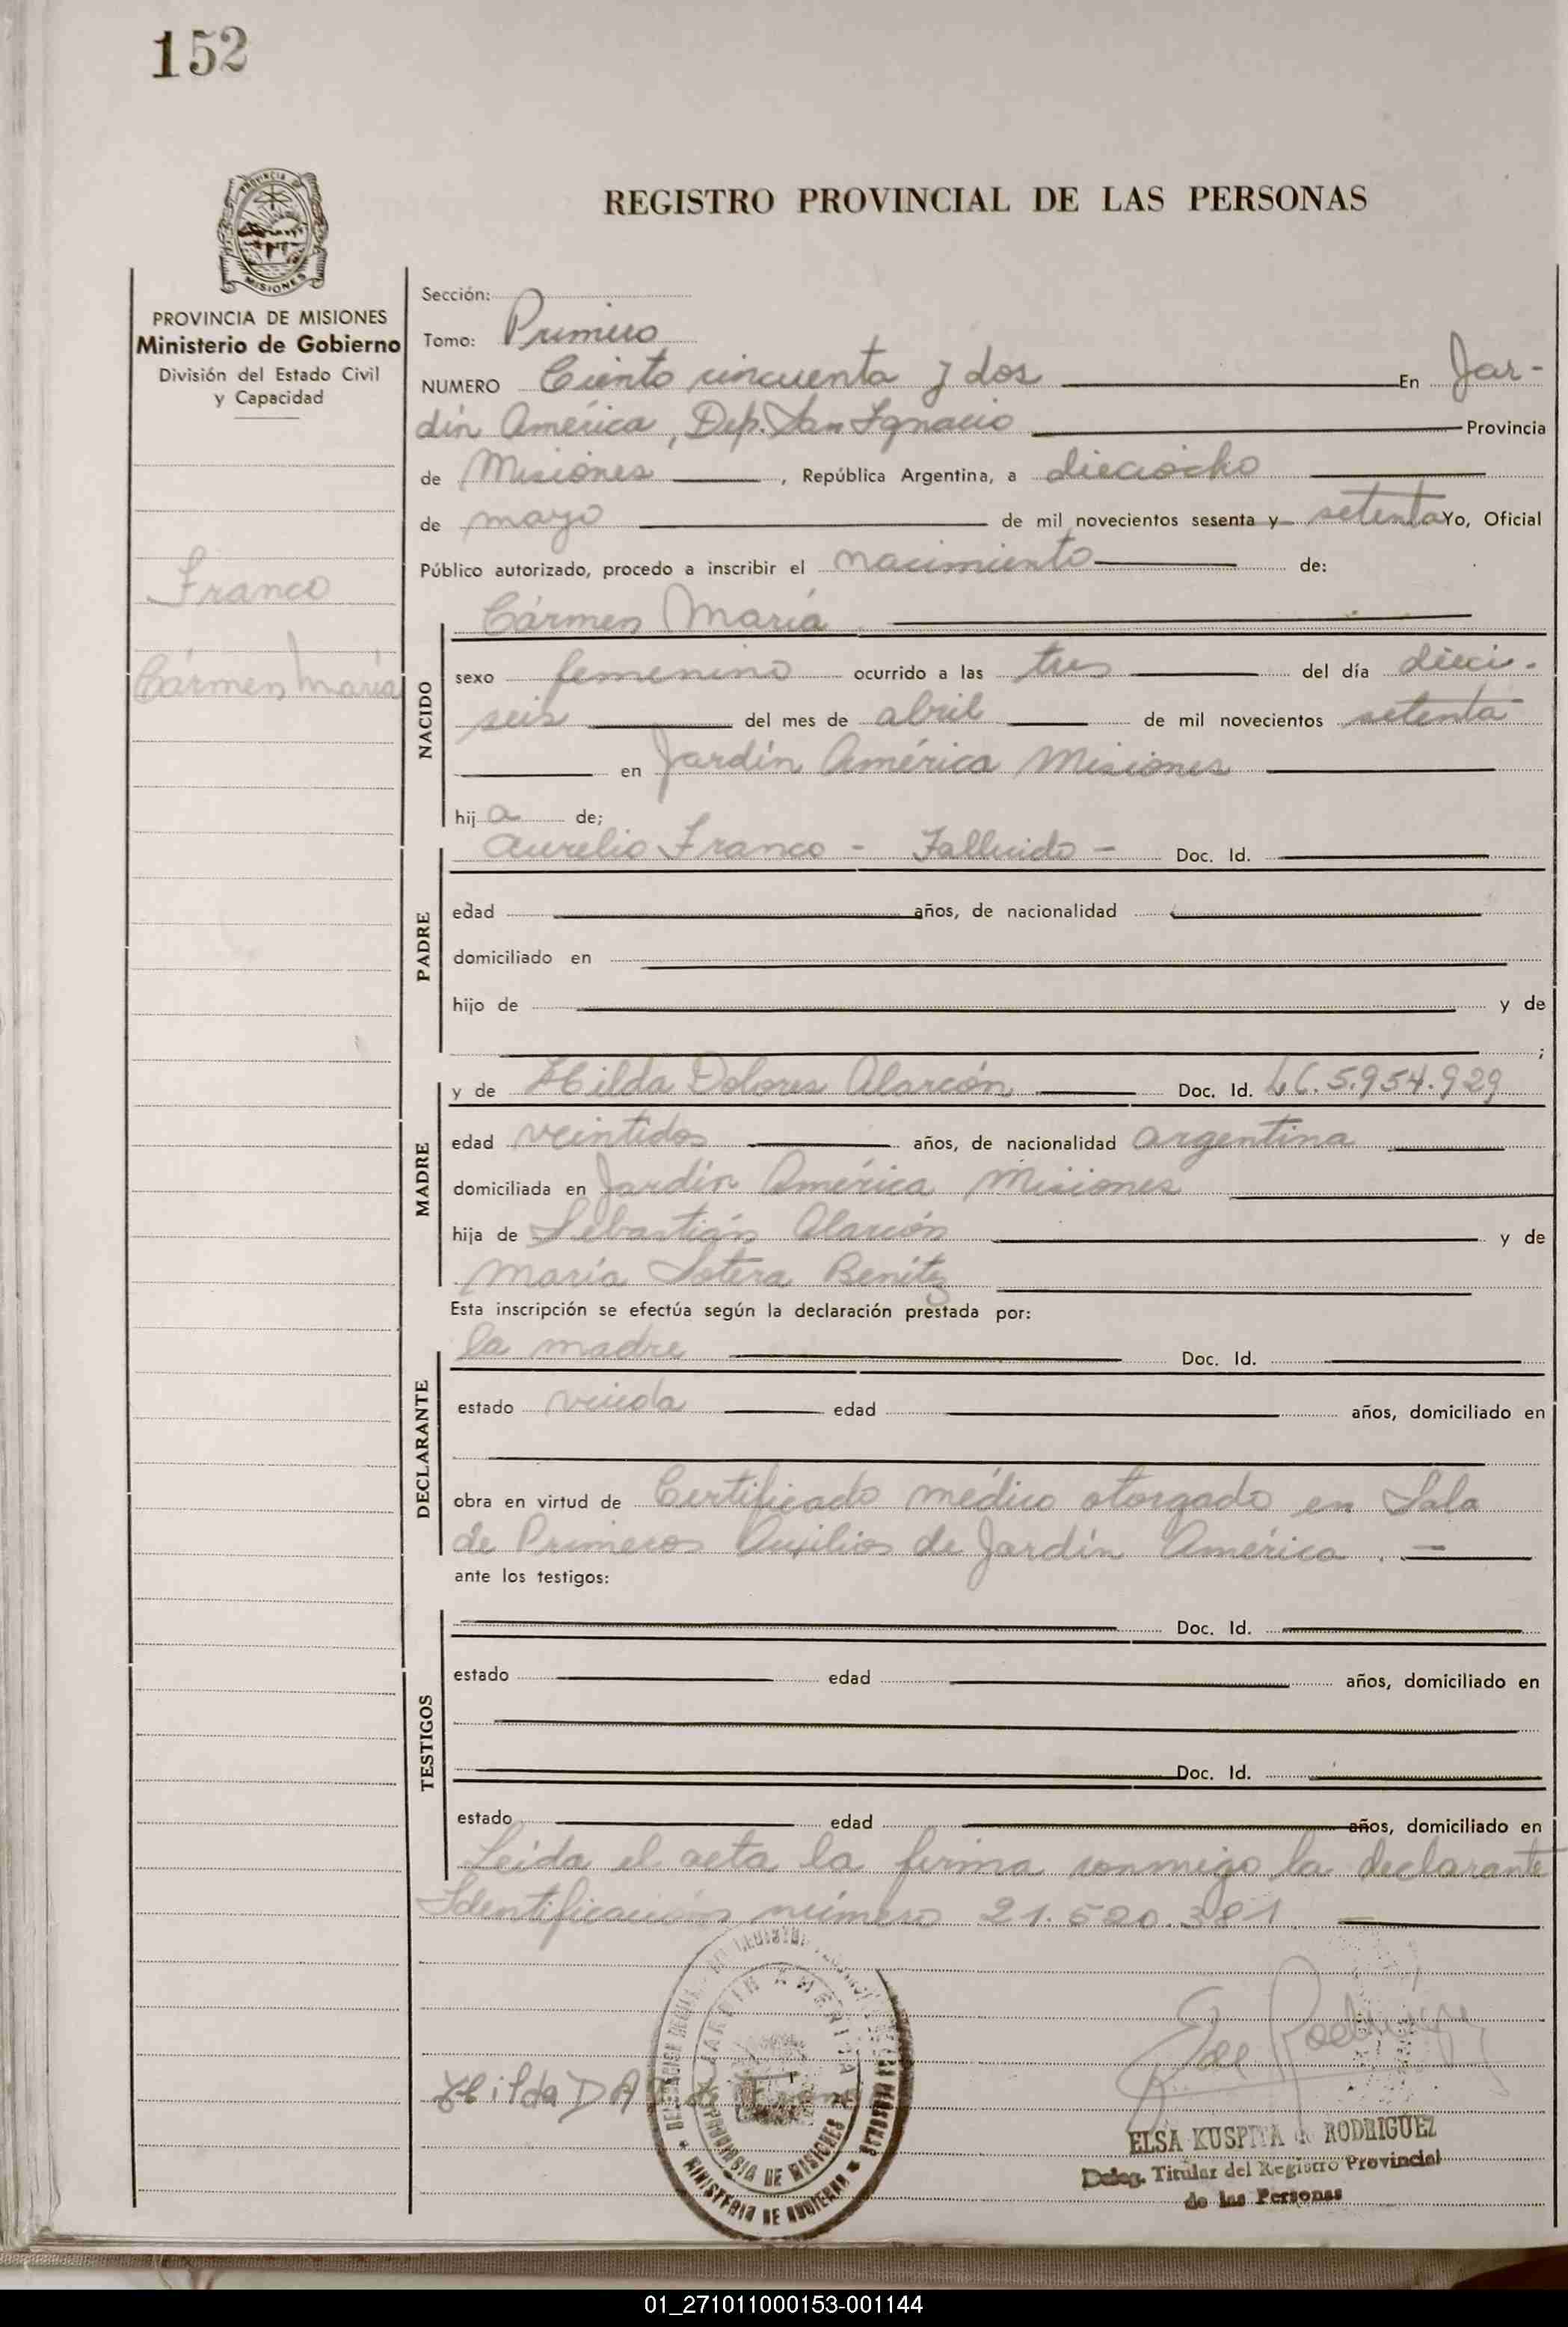 152
REGISTRO PROVINCIAL DE LAS PERSONAS
PROVINCIA DE MISIONES
Ministerio de Gobierno
División del Estado Civil
y Capacidad
Franco
Cármen María
Sección:
Tomo: Primero
NUMERO Ciento cincuenta y dos En Jar-
dín América, Dep. San Ignacio Provincia
de Misiones, República Argentina, a dieciocho
de mayo de mil novecientos sesenta y setenta Yo, Oficial
Público autorizado, procedo a inscribir el nacimiento de:
Cármen María
NACIDO
sexo femenino ocurrido a las tres del día dieci-
seis del mes de abril de mil novecientos setenta
en Jardín América Misiones
hija de;
PADRE
Aurelio Franco - Fallecido - Doc. Id.
edad años, de nacionalidad
domiciliado en
hijo de y de
;
MADRE
y de Hilda Dolores Alarcón Doc. Id. L.C. 5.954.929
edad veintidos años, de nacionalidad argentina
domiciliada en Jardín América Misiones
hija de Sebastián Alarcón y de
María Sotera Benitez
Esta inscripción se efectúa según la declaración prestada por:
DECLARANTE
la madre Doc. Id.
estado viuda edad años, domiciliado en
obra en virtud de Certificado médico otorgado en Sala
de Primeros Auxilios de Jardín América. -
ante los testigos:
TESTIGOS
Doc. Id.
estado edad años, domiciliado en
Doc. Id.
estado edad años, domiciliado en
Leida el acta la firma conmigo la declarante
Identificación número 21.520.381
Hilda D A
JARDIN AMERICA
PROVINCIA DE MISIONES
MINISTERIO DE GOBIERNO
ELSA KUSPITA de RODRIGUEZ
Deleg. Titular del Registro Provincial
de las Personas
01_271011000153-001144